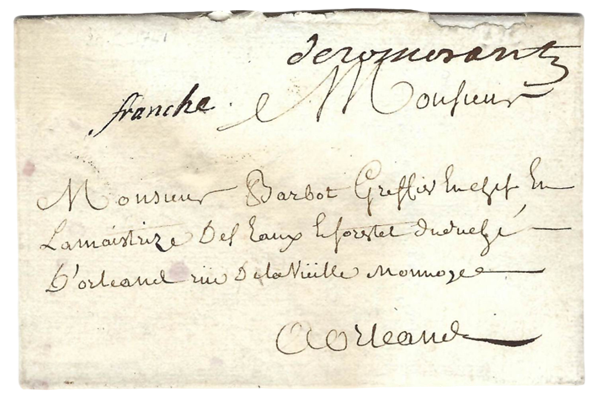 deromorantz
franche. Monsieur
Monsieur Barbot Greffier En chef En
Lamaistrize Des Eaux & forestet duduché
D'orleand rüe De la Vieille Monnoye
A orleand